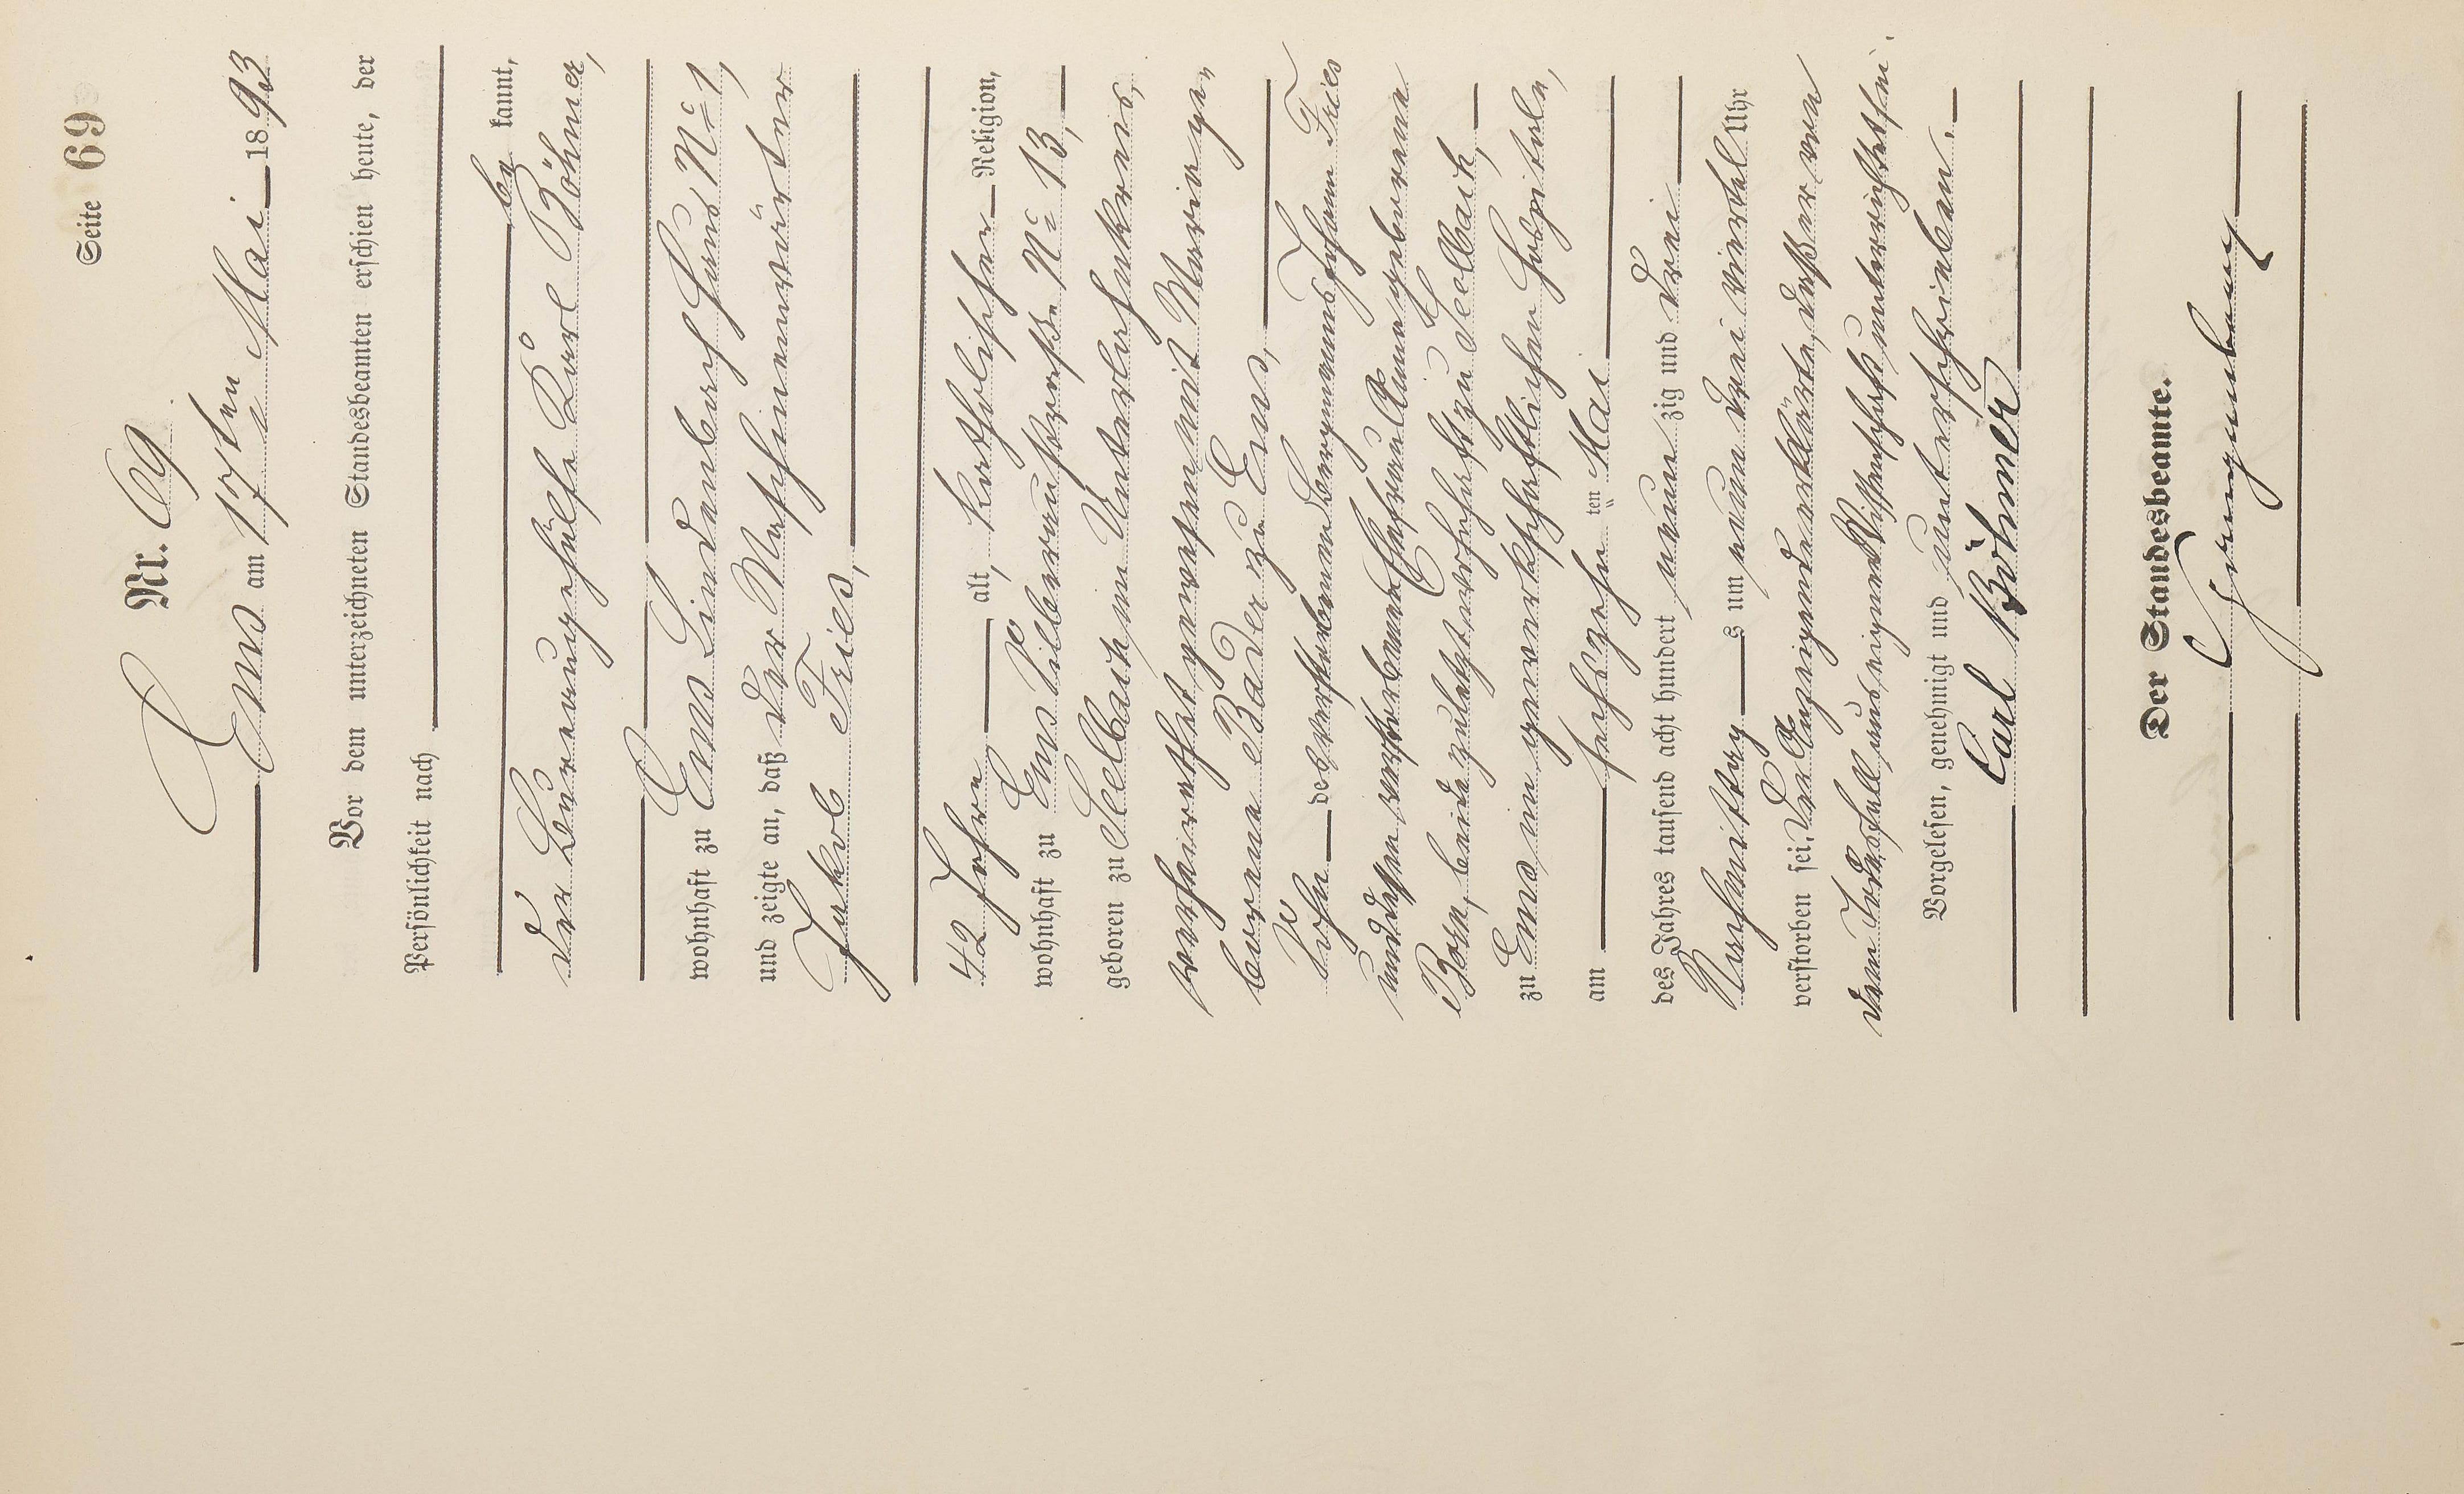 Seite 69
Nr. 69
Ems am 17ten Mai 1893
Vor dem unterzeichneten Standesbeamten erschien heute, der
Persönlichkeit nach
be kannt,
der Leuerungehülfe Karl Böhmer,
wohnhaft zu Ems Lindenbach Haus No 1,
und zeigte an, daß der Maschinenwärter
Jakob Fries,
42 Jahre alt, katholischer Religion,
wohnhaft zu Ems Silberaustraße No 13,
geboren zu Seelbach im Unterlahnkreis,
verheirathet gewesen mit Maria ge„
borene Bader zu Ems,
Sohn des verstorbenen Bergmanns Johann Fries
und dessen verstorbenen Ehefrau Anna geborene
Born, beide zuletzt wohnhaft zu Seelbach,
zu Ems im gewerkschaftlichen Hospitale,
am sechszehn ten Mai
des Jahres tausend acht hundert neun zig und drei
Nachmittag s um neun drei viertel Uhr
verstorben sei. Der Anzeigende erklärte, daß er von
dem Todesfall aus eigener Wissenschaft unterrichtet sei.
Vorgelesen, genehmigt und unterschrieben.
Carl Böhmer
Der Standesbeamte.